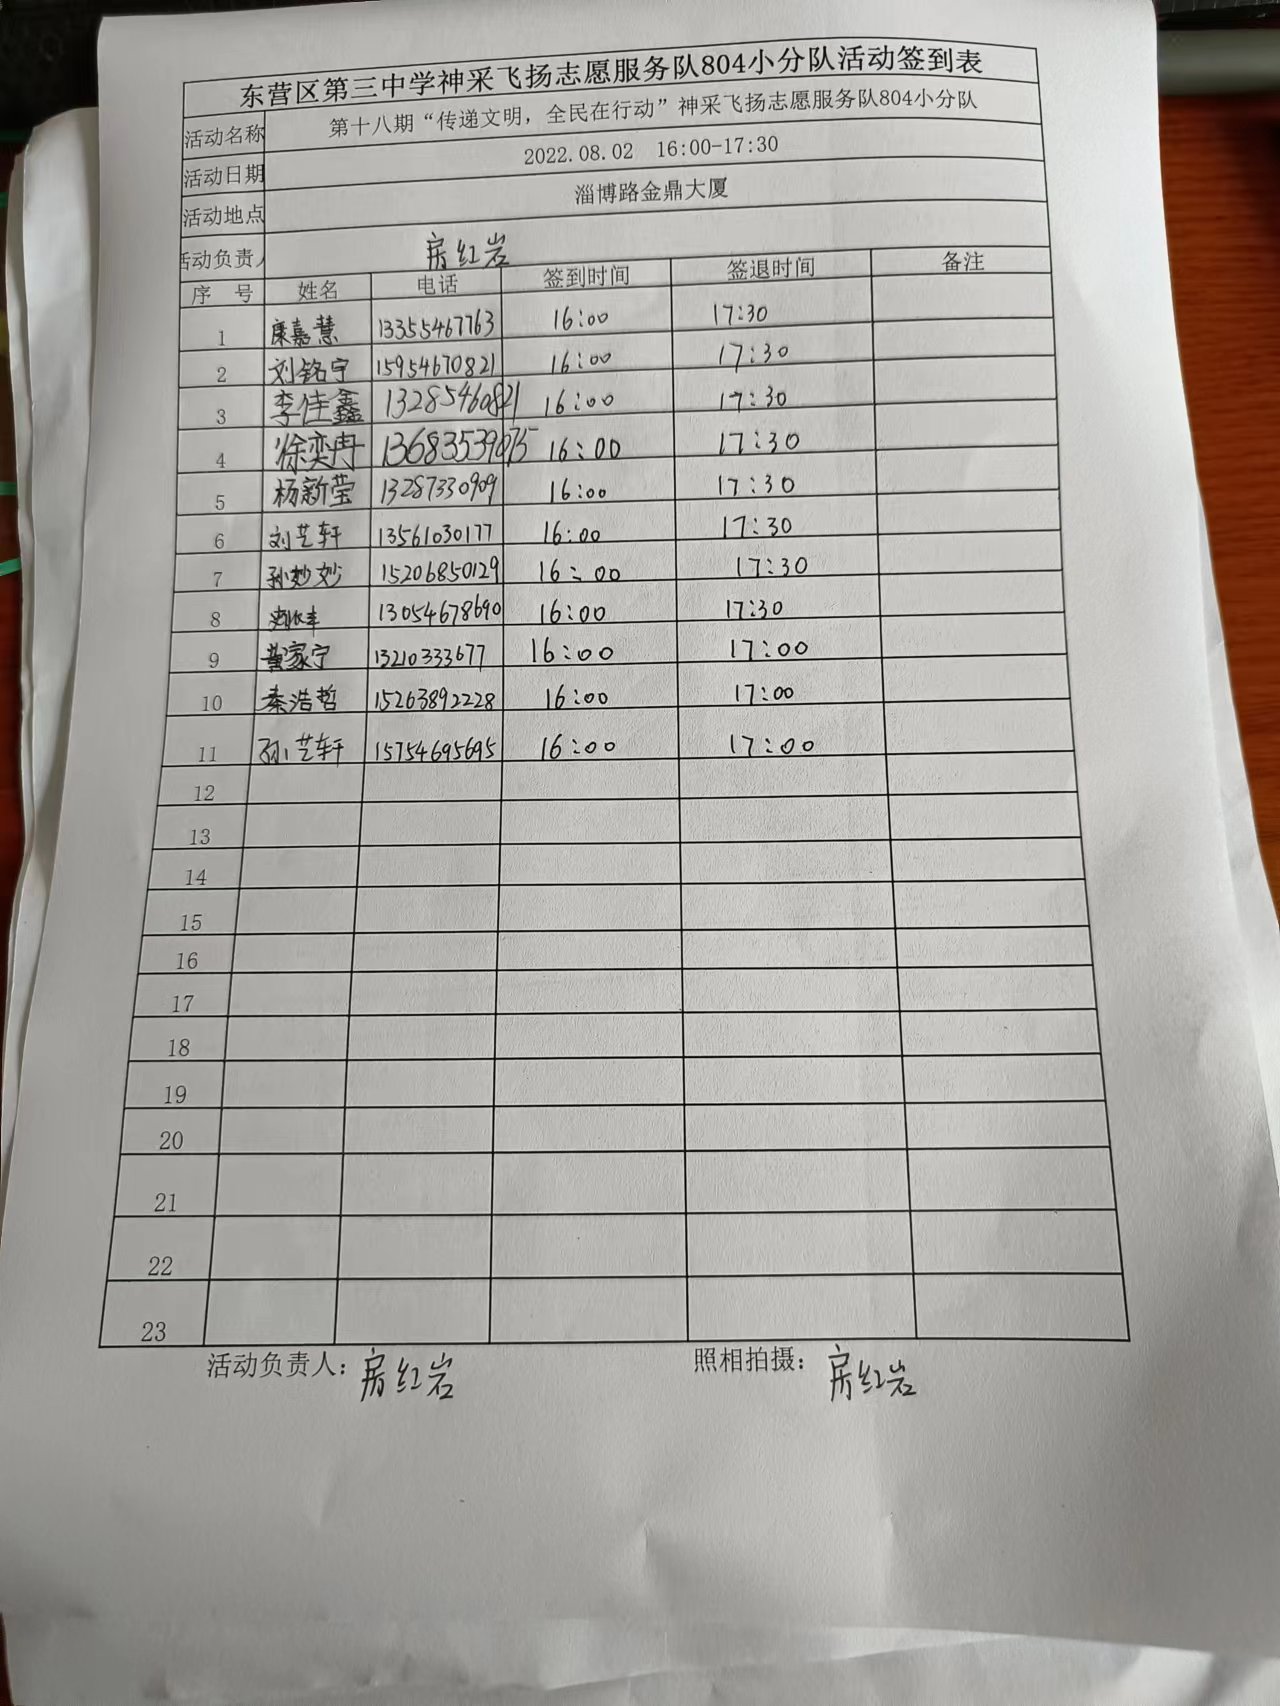 东营区第三中学神采飞扬志愿服务队804小分队活动签到表
活动名称 第十八期“传递文明，全民在行动”神采飞扬志愿服务队804小分队
活动日期 2022.08.02 16:00-17:30
活动地点 淄博路金鼎大厦
活动负责人 房红岩
序 号 姓名 电话 签到时间 签退时间 备注
1 康嘉慧 13355467763 16:00 17:30
2 刘铭宇 15954670821 16:00 17:30
3 李佳鑫 13285460821 16:00 17:30
4 徐奕冉 13683539075 16:00 17:30
5 杨新莹 13287330909 16:00 17:30
6 刘艺轩 13561030177 16:00 17:30
7 孙妙妙 15206850129 16:00 17:30
8 13054678690 16:00 17:30
9 黄家宁 13210333677 16:00 17:00
10 秦浩哲 15263892228 16:00 17:00
11 孙艺轩 15754695695 16:00 17:00
12
13
14
15
16
17
18
19
20
21
22
23
活动负责人：房红岩 照相拍摄：房红岩